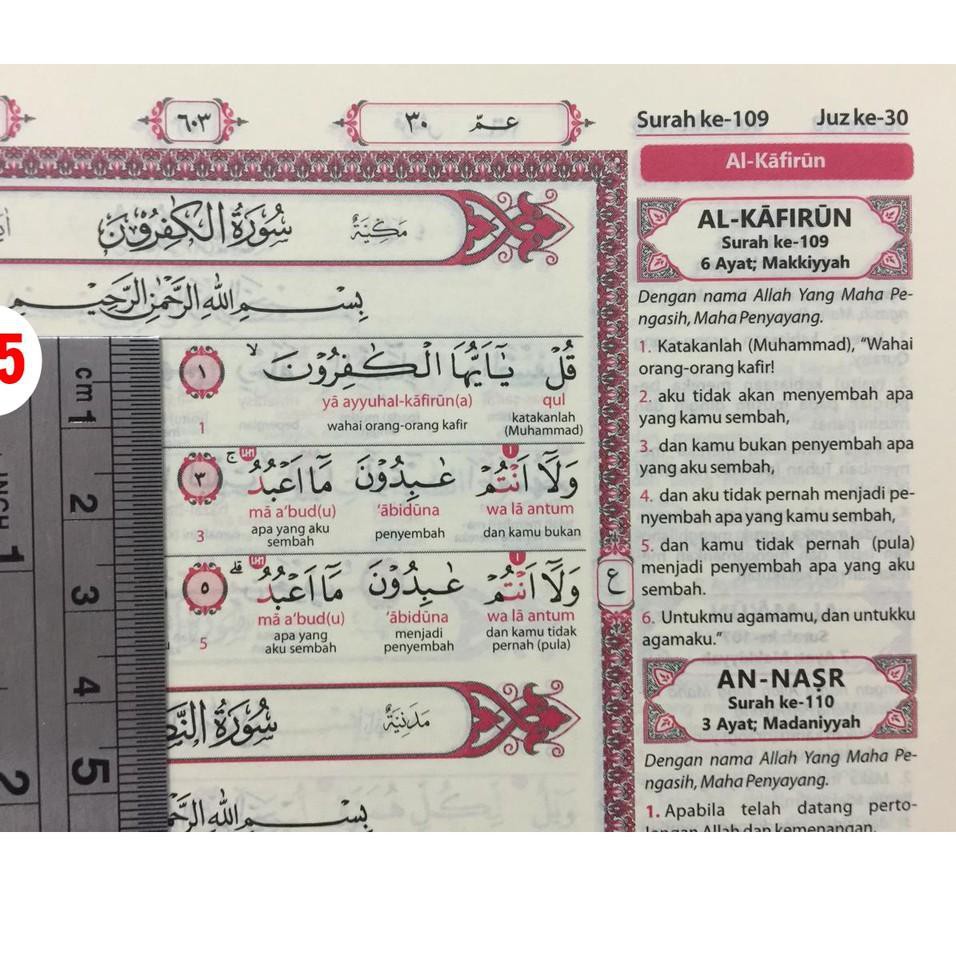 ٦٠٣
عمّ ٣٠
Surah ke-109 Juz ke-30
Al-Kāfirūn
سُوْرَةُ الْكٰفِرُوْنَ مَكِّيَّةٌ
بِسْمِ اللّٰهِ الرَّحْمٰنِ الرَّحِيْمِ
قُلْ يٰٓاَيُّهَا الْكٰفِرُوْنَۙ ١
qul yā ayyuhal-kāfirūn(a)
katakanlah (Muhammad) wahai orang-orang kafir 1
وَلَآ اَنْتُمْ عٰبِدُوْنَ مَآ اَعْبُدُۚ ٣
wa lā antum ‘ābidūna mā a‘bud(u)
dan kamu bukan penyembah apa yang aku sembah 3
وَلَآ اَنْتُمْ عٰبِدُوْنَ مَآ اَعْبُدُۗ ٥
wa lā antum ‘ābidūna mā a‘bud(u)
dan kamu tidak pernah (pula) menjadi penyembah apa yang aku sembah 5
ع
مَدَنِيَّةٌ
بِسْمِ اللّٰهِ
AL-KĀFIRŪN
Surah ke-109
6 Ayat; Makkiyyah
Dengan nama Allah Yang Maha Pe-
ngasih, Maha Penyayang.
1. Katakanlah (Muhammad), “Wahai
orang-orang kafir!
2. aku tidak akan menyembah apa
yang kamu sembah,
3. dan kamu bukan penyembah apa
yang aku sembah,
4. dan aku tidak pernah menjadi pe-
nyembah apa yang kamu sembah,
5. dan kamu tidak pernah (pula)
menjadi penyembah apa yang aku
sembah.
6. Untukmu agamamu, dan untukku
agamaku.”
AN-NAṢR
Surah ke-110
3 Ayat; Madaniyyah
Dengan nama Allah Yang Maha Pe-
ngasih, Maha Penyayang.
1. Apabila telah datang perto-
longan Allah dan kemenangan,
5
cm 1
2
3
4
5
INCH
1
2